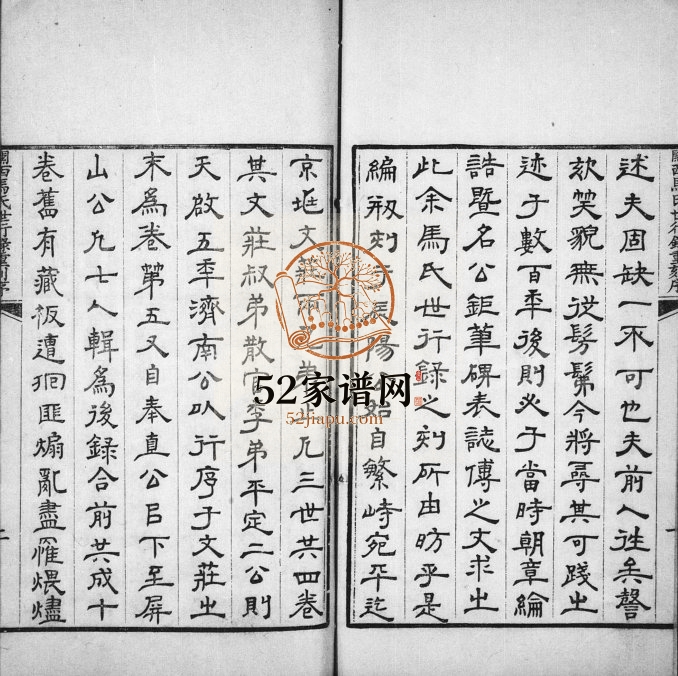 關西馬氏世行錄重刻序
述夫固缺一不可也夫前人往矣謦
欬笑貌無從髣髴今將尋其可踐之
迹于數百年後則必于當時朝章綸
誥暨名公鉅筆碑表誌傳之文求之
此余馬氏世行錄之刻所由昉乎是
編剏刻于辰陽公始自繁峙宛平迄
京埏文莊兩兄弟止凡三世共四卷
其文莊叔弟散官季弟平定二公則
天啟五年濟南公以行序于文莊之
末為卷第五又自奉直公已下至屏
山公凡七人輯為後錄合前共成十
卷舊有藏板遭匪煽亂盡罹煨燼
關西馬氏世行錄重刻序
二
52家谱网
52jiapu.com